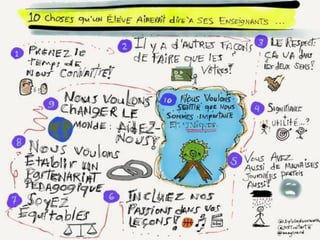 10 choses qu'un élève aimerait dire à ses enseignants ...
1
Prenez le
temps de
nous connaître!
2
Il y a d'autres façons
de faire que les
vôtres!
3
Le respect:
ça va dans
les deux sens!
4
Signifiance
utilité...?
5
Vous avez
aussi de mauvaises
journées parfois
aussi!
6
Incluez nos
passions dans
vos leçons!
7
Soyez
équitables
8
Nous voulons
établir un
partenariat
pédagogique
9
Nous voulons
changer le
monde: aidez-
nous!
10
Nous voulons
sentir que nous
sommes importants
et uniques.